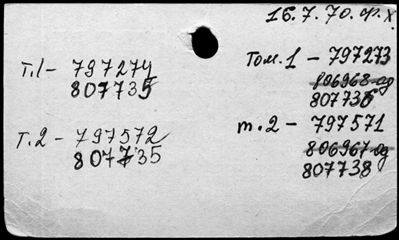 16.7.70. ф.х
Т.1 - 797274
807735
Т.2 - 797572
807735
Том.1 - 797273
806968-ад
807736
т.2 - 797571
806967-ад
807738